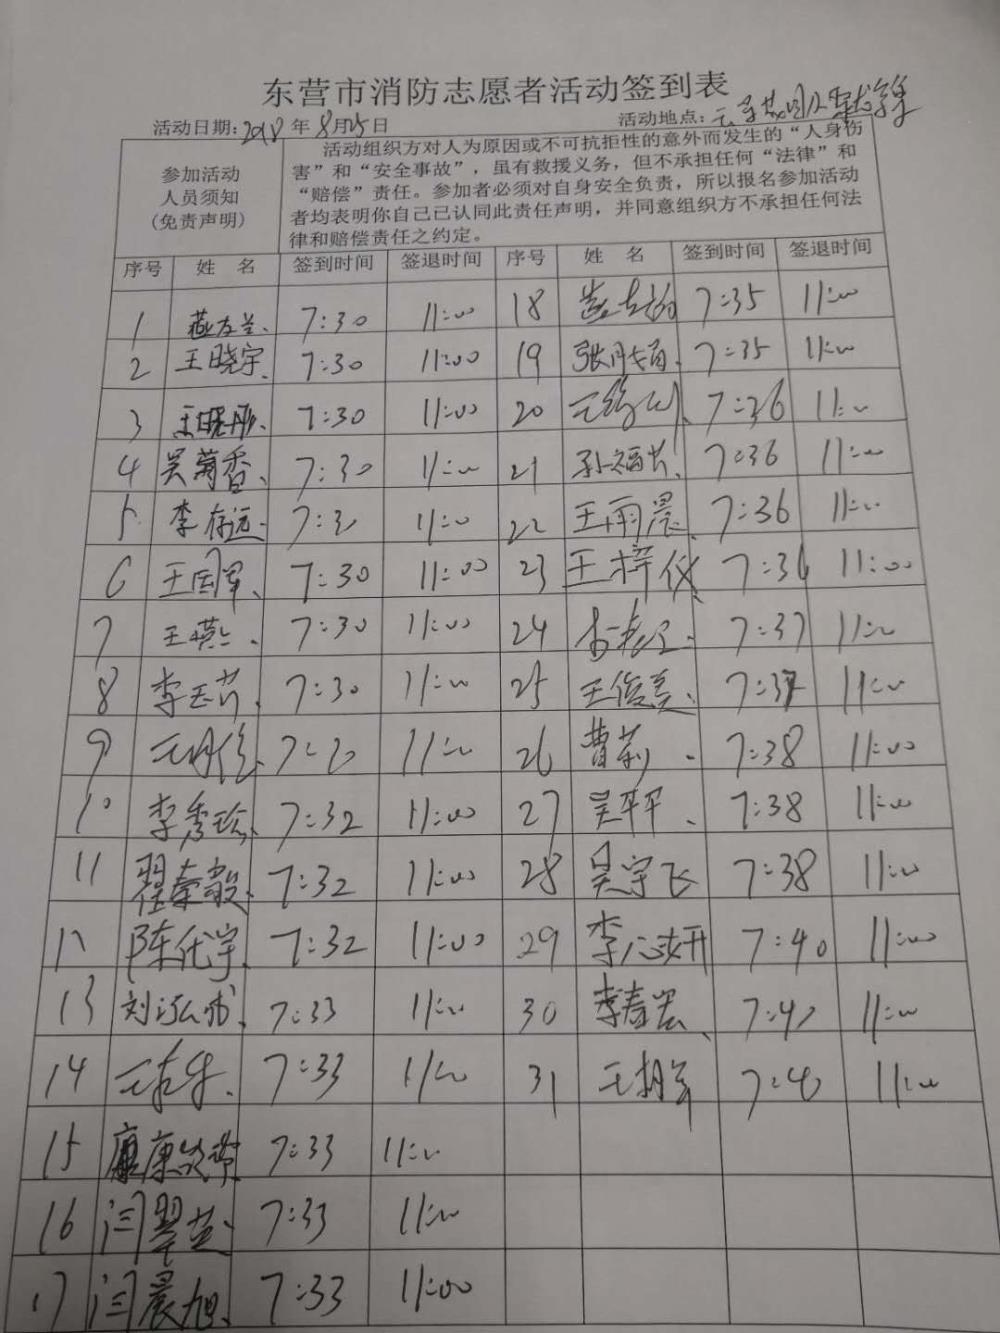 东营市消防志愿者活动签到表
活动日期:2018年8月15日 活动地点:
参加活动
人员须知
(免责声明)
活动组织方对人为原因或不可抗拒性的意外而发生的“人身伤
害”和“安全事故”,虽有救援义务,但不承担任何“法律”和
“赔偿”责任。参加者必须对自身安全负责,所以报名参加活动
者均表明你自己已认同此责任声明,并同意组织方不承担任何法
律和赔偿责任之约定。
序号 姓 名 签到时间 签退时间 序号 姓 名 签到时间 签退时间
1 燕友兰 7:30 11:00 18 7:35 11:00
2 王晓宇 7:30 11:00 19 7:35 11:00
3 王晓彤 7:30 11:00 20 7:36 11:00
4 吴菊香 7:30 11:00 21 7:36 11:00
5 李存远 7:30 11:00 22 王雨晨 7:36 11:00
6 王国军 7:30 11:00 23 王梓仪 7:36 11:00
7 王燕 7:30 11:00 24 7:37 11:00
8 李玉芹 7:30 11:00 25 王俊美 7:37 11:00
9 7:30 11:00 26 曹莉 7:38 11:00
10 李秀珍 7:32 11:00 27 吴平平 7:38 11:00
11 翟秦毅 7:32 11:00 28 吴宇飞 7:38 11:00
12 陈代宇 7:32 11:00 29 李心妍 7:40 11:00
13 刘泓成 7:33 11:00 30 李春岩 7:40 11:00
14 7:33 11:00 31 7:40 11:00
15 7:33 11:00
16 闫翠芝 7:33 11:00
17 闫晨旭 7:33 11:00